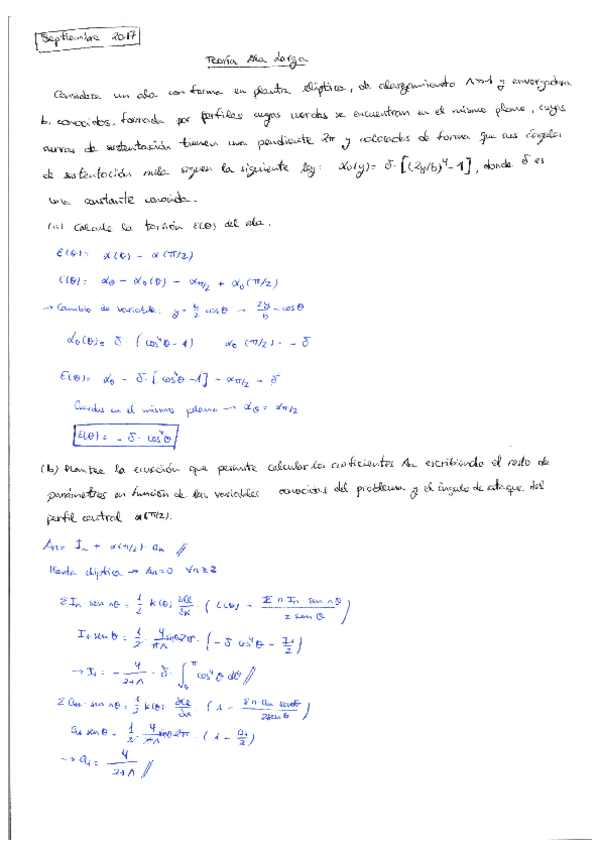 Septiembre 2017
Teoría Ala Larga
Considere un ala con forma en planta elíptica, de alargamiento Λ>>1 y envergadura
b, conocidos, formada por perfiles cuyas cuerdas se encuentran en el mismo plano, cuyas
curvas de sustentación tienen una pendiente 2π y colocados de forma que sus ángulos
de sustentación nula siguen la siguiente ley: α₀(y) = δ·[(2y/b)⁴-1], donde δ es
una constante conocida.
(a) Calcule la torsión ε(θ) del ala.
ε(θ) = α(θ) - α(π/2)
ε(θ) = αθ - α₀(θ) - απ/2 + α₀(π/2)
→ Cambio de variable: y = b/2 cosθ → 2y/b = cosθ
α₀(θ) = δ·(cos⁴θ-1) α₀(π/2) = -δ
ε(θ) = αθ - δ·[cos⁴θ-1] - απ/2 - δ
Cuerdas en el mismo plano → αθ = απ/2
ε(θ) = -δ·cos⁴θ
(b) Plantee la ecuación que permite calcular los coeficientes An escribiendo el resto de
parámetros en función de las variables conocidas del problema y el ángulo de ataque del
perfil central α(π/2).
An = In + α(π/2)·an //
Planta elíptica → An=0 ∀n≥2
ΣIn sen nθ = 1/2 k(θ) ∂Cl/∂α · (ε(θ) - Σn·In·sen nθ / 2senθ)
I₁·senθ = 1/2 · 4/πΛ senθ 2π · (-δ cos⁴θ - I₁/2)
→ I₁ = - 4/2+Λ · δ · ∫₀^π cos⁴θ dθ //
Σan·sen nθ = 1/2 k(θ) · ∂Cl/∂α · (1 - Σn·an sennθ / 2senθ)
a₁ senθ = 1/2 · 4/πΛ senθ 2π · (1 - a₁/2)
→ a₁ = 4/2+Λ //